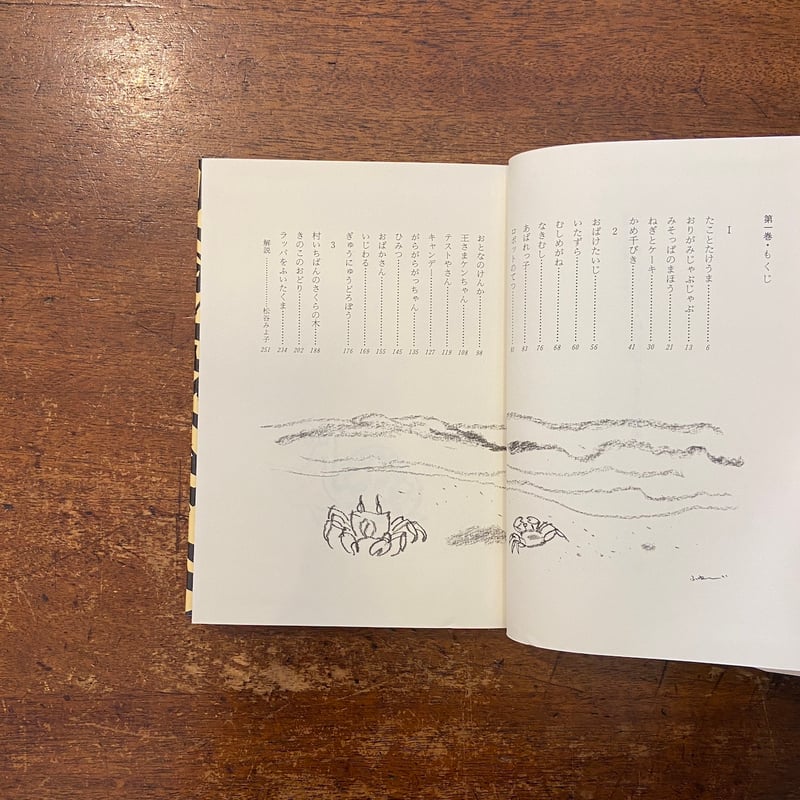 第一巻・もくじ
I
たことたけうま…………6
おりがみじゃぶじゃぶ…………13
みそっぱのまほう…………21
ねぎとケーキ…………30
かめ千びき…………41
2
おばけたいじ…………56
いたずら…………60
むしめがね…………68
なきむし…………76
あばれっ子…………81
ロボットのてつ…………
おとなのけんか…………98
王さまケンちゃん…………108
テストやさん…………119
キャンデー…………127
がらがらがっちゃん…………135
ひみつ…………145
おばかさん…………155
いじわる…………169
ぎゅうにゅうどろぼう…………176
3
村いちばんのさくらの木…………188
きのこのおどり…………202
ラッパをふいたくま…………234
解説…………松谷みよ子 251